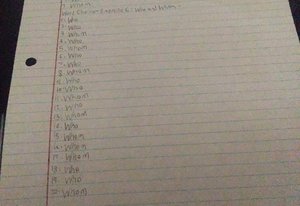 7. Whom
Exercise 6: Who and Whom
1. Who
2. Who
3. Whom
4. Who
5. Whom
6. Who
7. Who
8. Whom
9. Who
10. Who
11. Whom
12. Who
13. Whom
14. Who
15. Whom
16. Whom
17. Whom
18. Who
19. Who
20. Whom